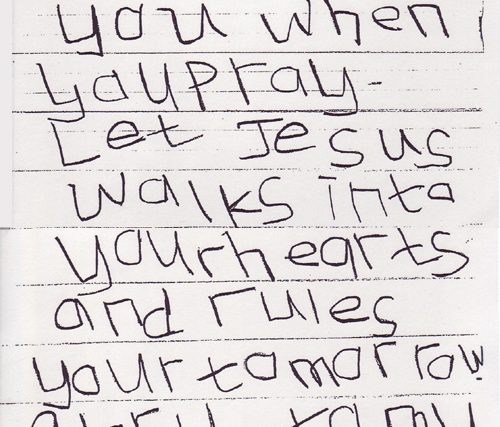 you when
you pray-
Let Jesus
walks into
your hearts
and rules
your tomorrow
glory to my